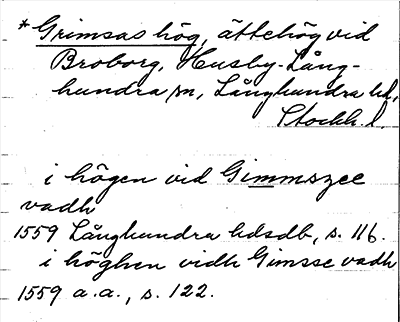 * Grimsas hög, ättehög vid
Broborg, Husby-Lång-
hundra sn, Långhundra hd,
Stockh. l.
i högen vid Gimmszee
vadh
1559 Långhundra hdsdb, s. 116.
i höghen vidh Gimsse vadh
1559 a.a., s. 122.